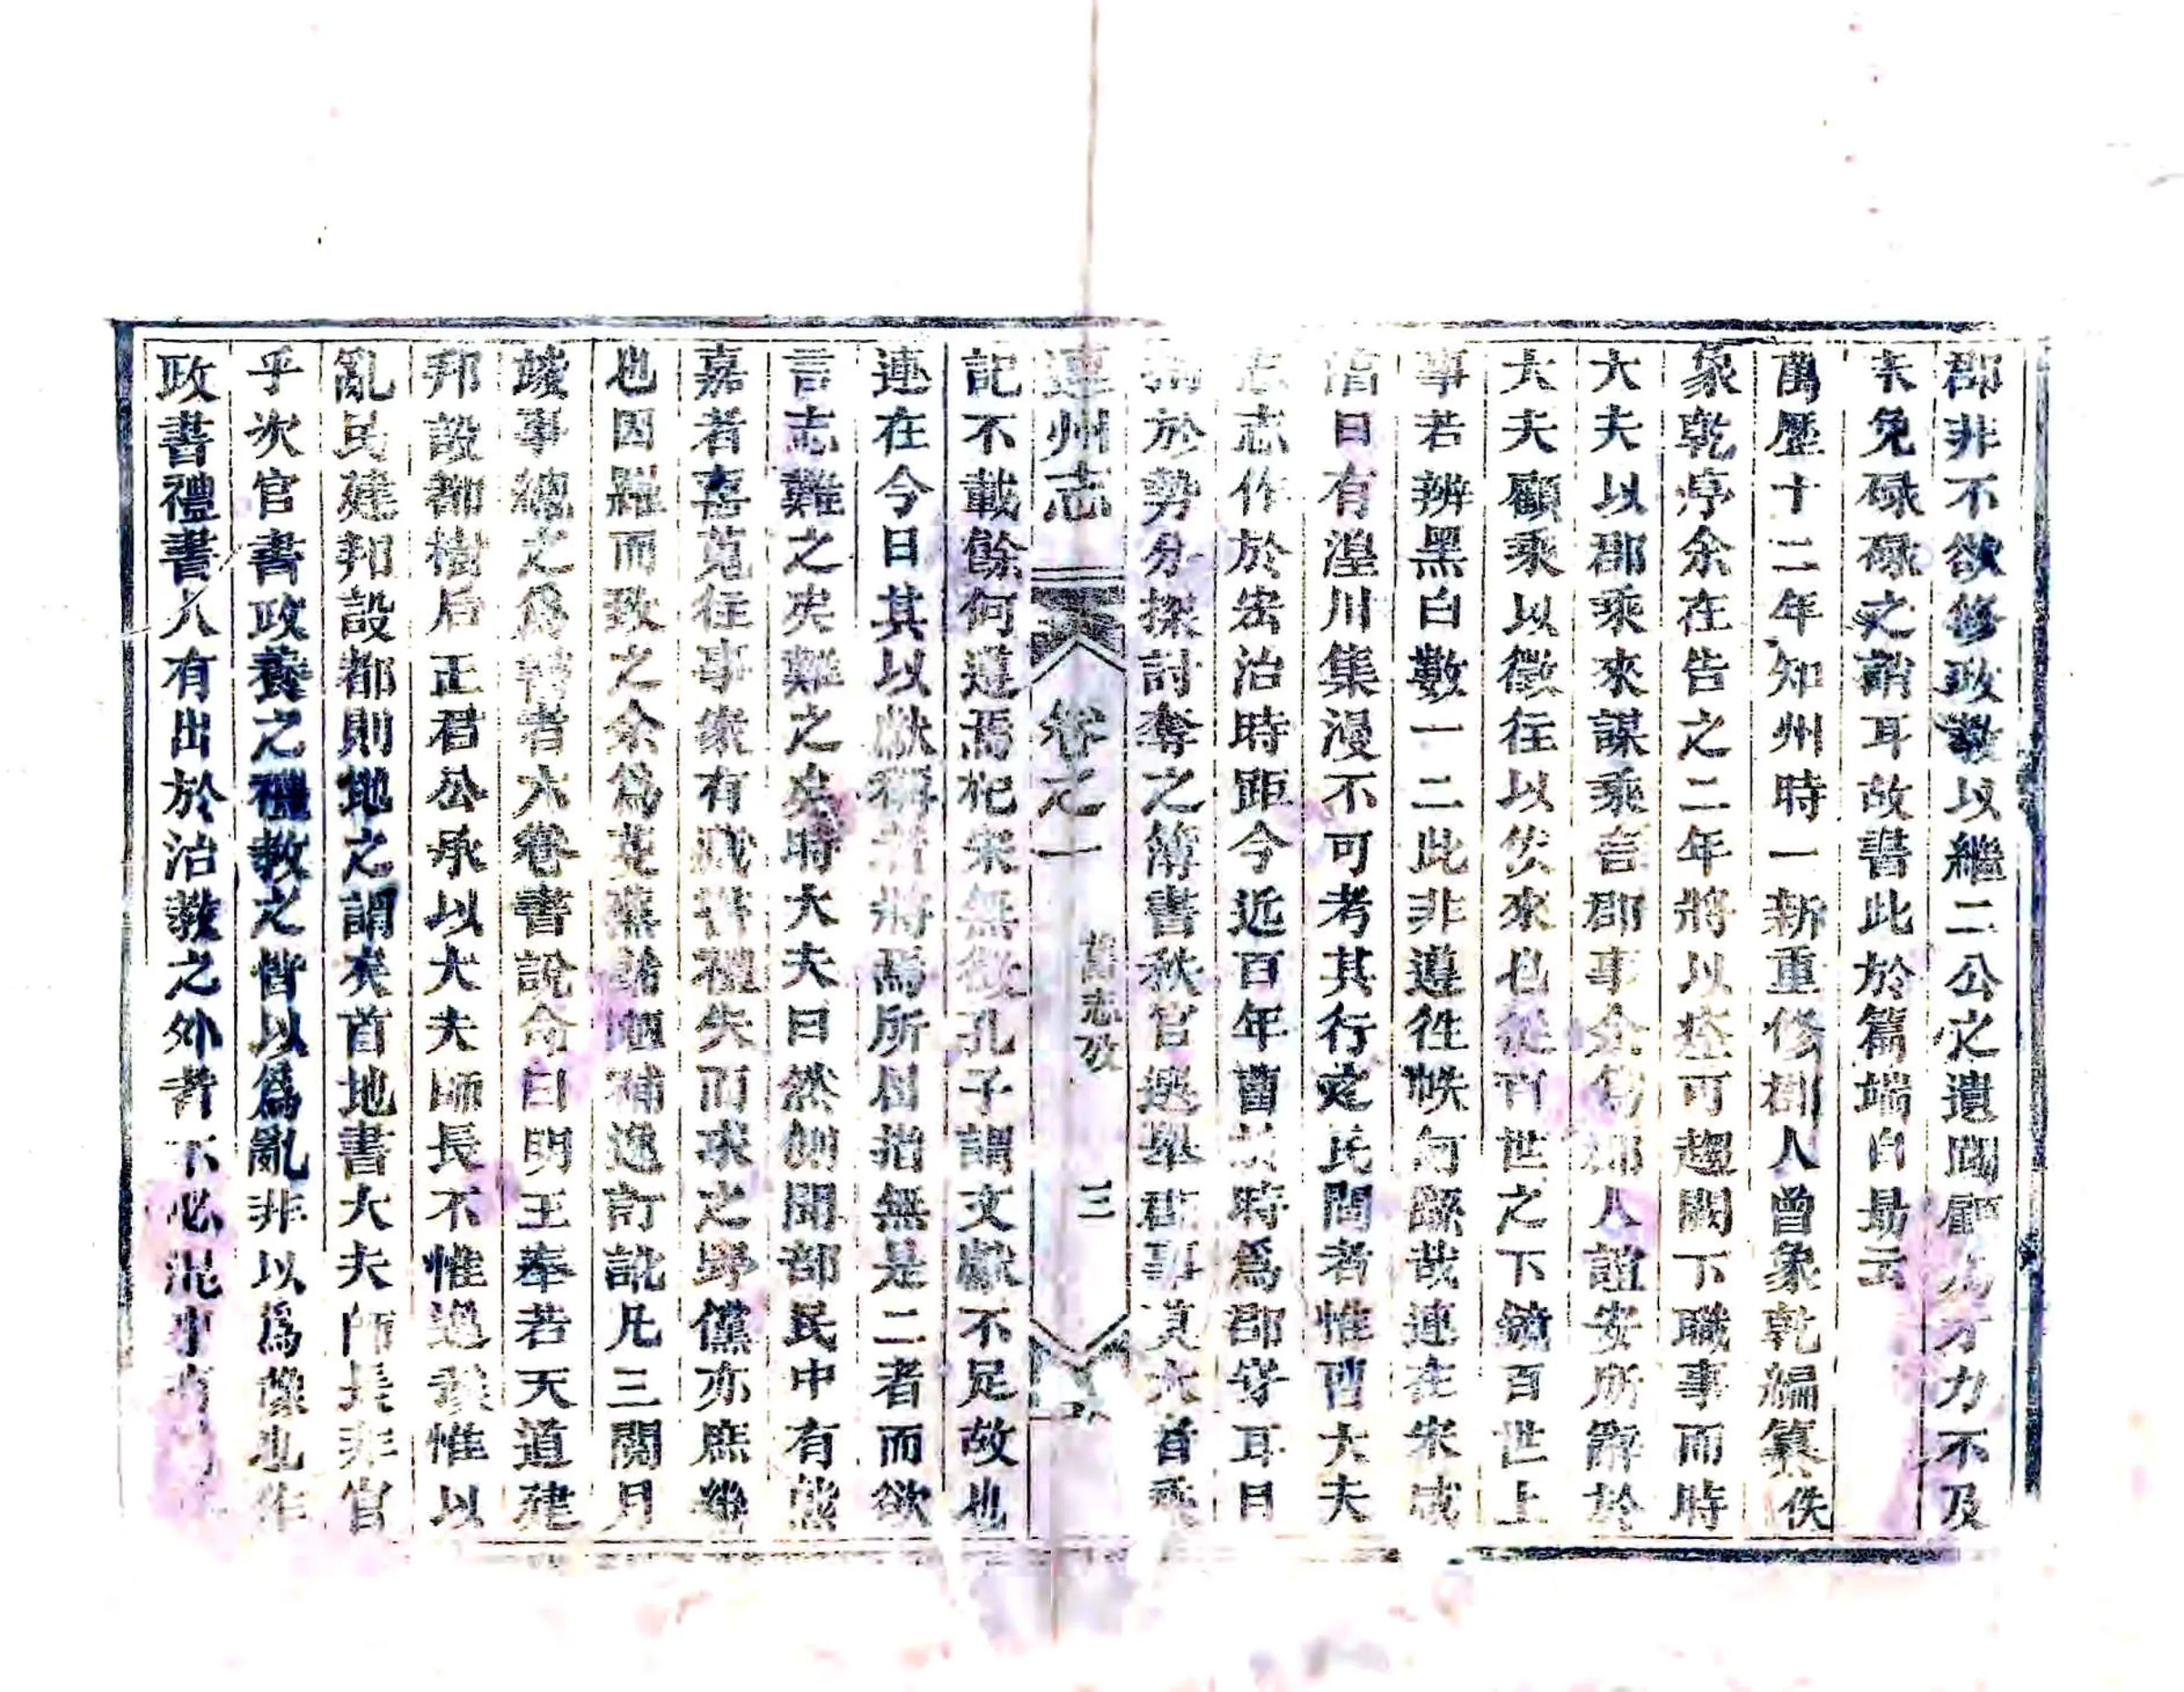 郡非不欲修政教以繼二公之遺聞顧才力不及
未免碌碌之誚耳故書此於篇端自勗云
萬歷十二年知州時一新重修郡人曾象乾編纂佚
象乾序余在告之二年將以塋可趨闕下職事而時
大夫以郡乘來謀乘言郡事余郡人誼安所辭於
大夫顧乘以徵往以俟來也從百世之下鏡百世上
事若辨黑白數一二此非遵往牒何繇哉連在宋咸
淳日有湟川集漫不可考其行之民間者惟曹大夫
志志作於宏治時距今近百年曹時爲郡守耳目
於勢分探討奪之簿書秋官選舉郡事莫大首乘
連州志 卷之一 舊志攷 三
記不載餘何道焉杞宋無徵孔子謂文獻不足故也
連在今日其以獻稱者將焉所屈指無是二者而欲
言志難之矣難之矣時大夫曰然側聞部民中有熊
嘉者喜蒐往事家有藏書禮失而求之野儻亦庶幾
也因羅而致之余爲芟蕪補逸訂訛凡三閱月
竣事總之爲者六卷書說命曰明王奉若天道建
邦設都樹后正君公承以大夫師長不惟逸豫惟以
亂民建邦設都則地之謂矣首地書大夫師長非官
乎次官書政養之禮教之皆以爲亂非以爲豫也作
政書禮書人有出於治教之外者不必混事